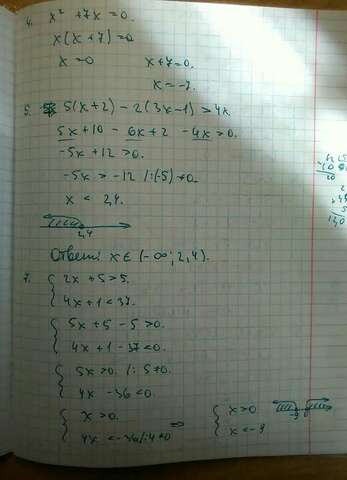 4. x² + 7x = 0.
x(x+7) = 0
x = 0 x+7=0.
x = -7.
5. 5(x+2) - 2(3x-1) > 4x.
5x+10 - 6x+2 - 4x > 0.
-5x + 12 > 0.
-5x > -12 |:(-5) ≠0.
x < 2,4.
2,4
Ответ: x ∈ (-∞; 2,4).
7. { 2x + 5 > 5.
4x + 1 < 37.
{ 5x + 5 - 5 > 0.
4x + 1 - 37 < 0.
{ 5x > 0. |: 5 ≠ 0.
4x - 36 < 0.
{ x > 0. ⇒ { x > 0 -9 0
4x < -36 |:4 ≠ 0 x < -9